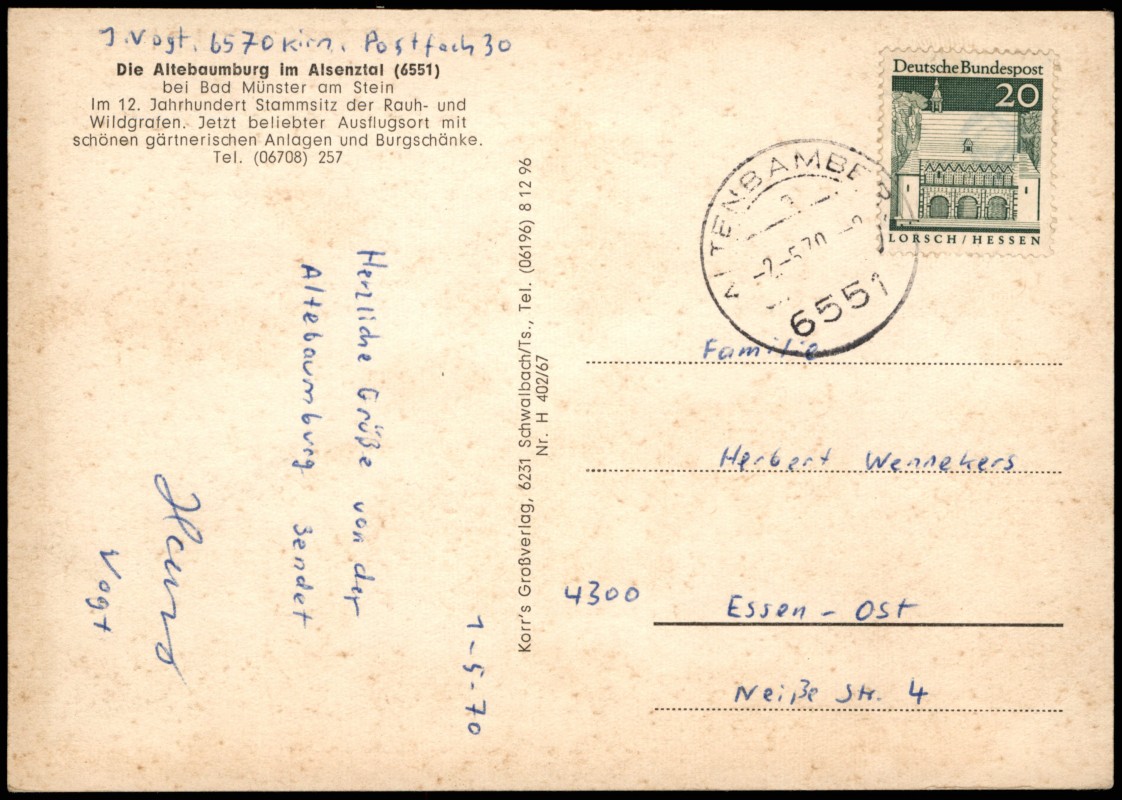 J. Vogt. 6570 Kirn. Postfach 30
Die Altebaumburg im Alsenztal (6551)
bei Bad Münster am Stein
Im 12. Jahrhundert Stammsitz der Rauh- und
Wildgrafen. Jetzt beliebter Ausflugsort mit
schönen gärtnerischen Anlagen und Burgschänke.
Tel. (06708) 257
1-5-70
Herzliche Grüße von der
Altebaumburg sendet
Hans
Vogt
Korr's Großverlag, 6231 Schwalbach/Ts., Tel. (06196) 8 12 96
Nr. H 402/67
Deutsche Bundespost
20
LORSCH/HESSEN
ALTENBAMBE
-2.-5.70
6551
Familie
Herbert Wennekers
4300 Essen - Ost
Neiße Str. 4